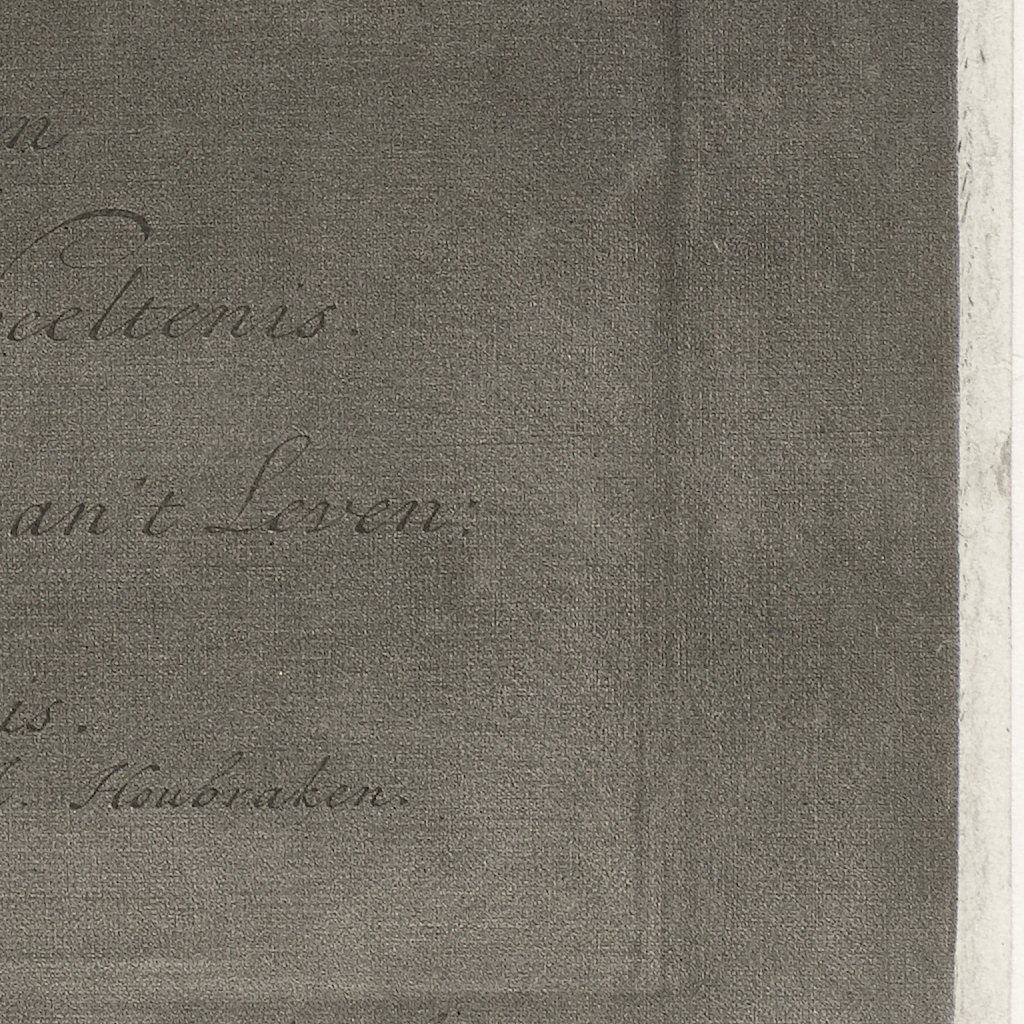 n
beeltenis.
an't Leven;
is.
. Houbraken.